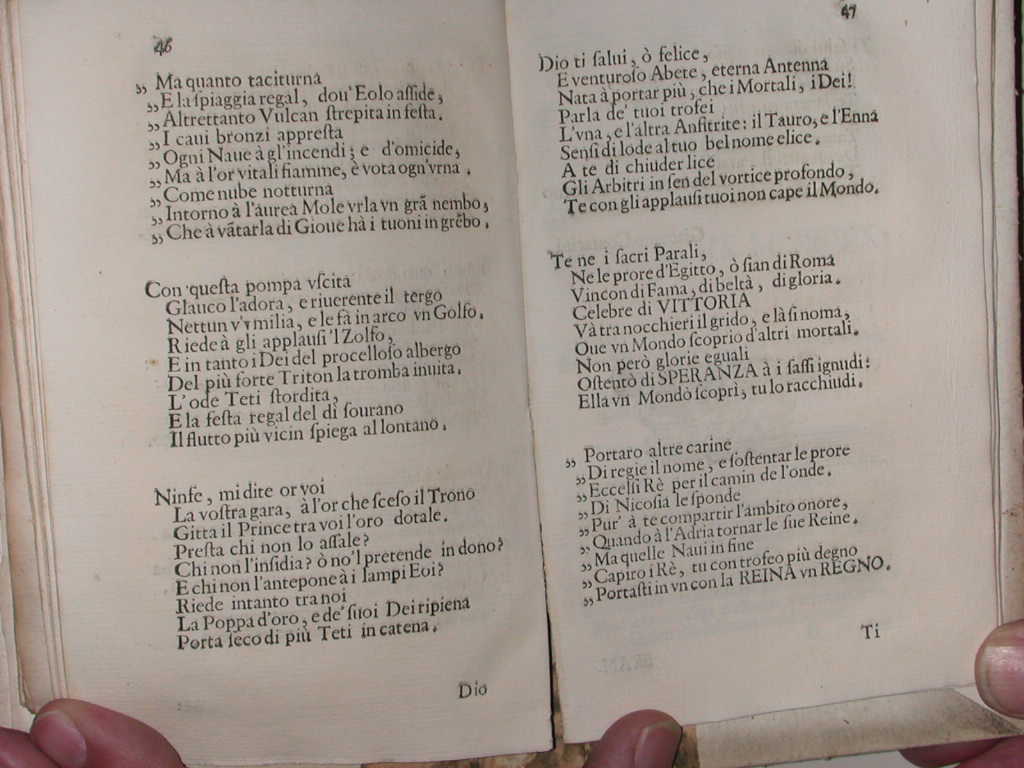 46
„ Ma quanto taciturna
„ E la ſpiaggia regal, dou' Eolo aſſide,
„ Altrettanto Vulcan ſtrepita in feſta.
„ I caui bronzi appreſta
„ Ogni Naue à gl'incendi; e d'omicide,
„ Ma à l'or vitali fiamme, è vota ogn'vrna.
„ Come nube notturna
„ Intorno à l'áurea Mole vrla vn grã nembo,
„ Che à vãtarla di Gioue hà i tuoni in grẽbo.
Con queſta pompa vſcita
Glauco l'adora, e riuerente il tergo
Nettun v'vmilia, e le fà in arco vn Golfo.
Riede à gli applauſi 'l Zolfo,
E in tanto i Dei del procelloſo albergo
Del più forte Triton la tromba inuita.
L'ode Teti ſtordita,
E la feſta regal del dì ſourano
Il flutto più vicin ſpiega al lontano.
Ninfe, mi dite or voi
La voſtra gara, à l'or che ſceſo il Trono
Gitta il Prince tra voi l'oro dotale.
Preſta chi non lo aſſale?
Chi non l'inſidia? ò no'l pretende in dono?
E chi non l'antepone à i lampi Eoi?
Riede intanto tra noi
La Poppa d'oro, e de' ſuoi Dei ripiena
Porta ſeco di più Teti in catena.
Dio
47
Dio ti ſalui, ò felice,
E venturoſo Abete, eterna Antenna
Nata à portar più, che i Mortali, i Dei!
Parla de' tuoi trofei
L'vna, e l'altra Anfitrite: il Tauro, e l'Enna
Senſi di lode al tuo bel nome elice.
A te di chiuder lice
Gli Arbitri in ſen del vortice profondo,
Te con gli applauſi tuoi non cape il Mondo.
Te ne i ſacri Parali,
Ne le prore d'Egitto, ò ſian di Roma
Vincon di Fama, di beltà, di gloria.
Celebre di VITTORIA
Và tra nocchieri il grido, e là ſi noma,
Oue vn Mondo ſcoprio d'altri mortali.
Non però glorie eguali
Oſtentò di SPERANZA à i ſaſſi ignudi:
Ella vn Mondo ſcoprì, tu lo racchiudi.
„ Portaro altre carine
„ Di regie il nome, e ſoſtentar le prore
„ Eccelſi Rè per il camin de l'onde.
„ Di Nicoſia le ſponde
„ Pur' à te compartir l'ambito onore,
„ Quando à l'Adria tornar le ſue Reine.
„ Ma quelle Naui in fine
„ Capiro i Rè, tu con trofeo più degno
„ Portaſti in vn con la REINA vn REGNO.
Ti